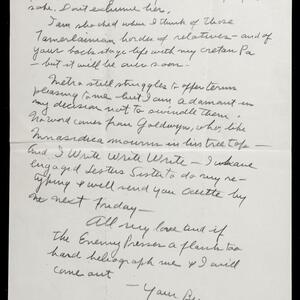 sake, Don't exhume her.
I am shocked when I think of those
Tamerlainian hordes of relatives – and of
your back stage life with my cretan Pa
– but it will be over soon.
Metro still struggles to offer terms
pleasing to me but I am adamant in
my decision not to swindle them.
No word comes from Goldwyn, who, like
mourns in his tree top –
And I Write Write Write – I have
engaged Sister to do my re-
typing & will send you by
next Friday –
All my love and if
the Enemy Presses a flank too
hard heliograph me & I will
come out
– Your